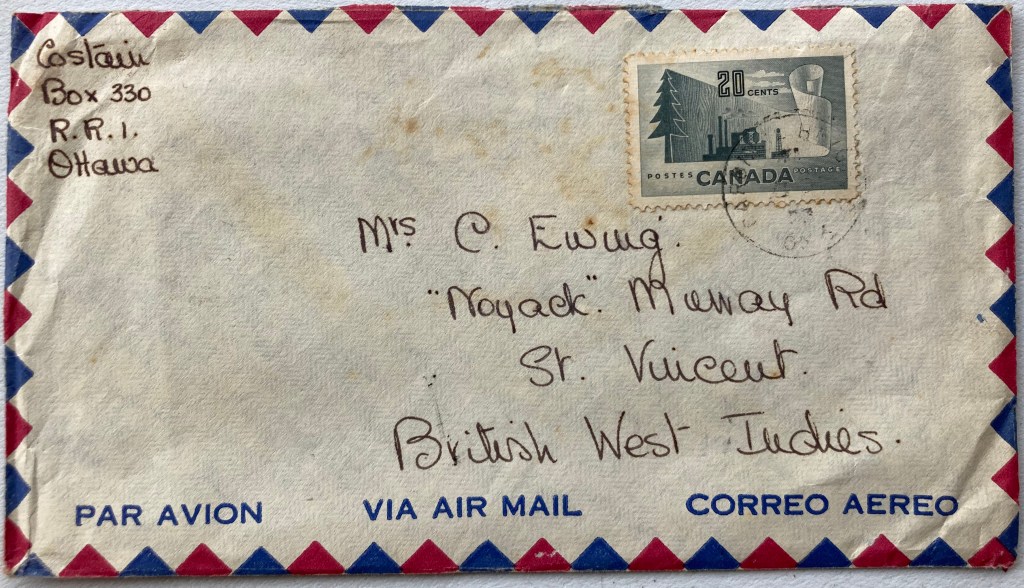 Costain
Box 330
R.R.1.
Ottawa
20 CENTS
POSTES CANADA POSTAGE
Mrs. C. Ewing.
"Noyack". Murray Rd
St. Vincent.
British West Indies.
PAR AVION VIA AIR MAIL CORREO AEREO